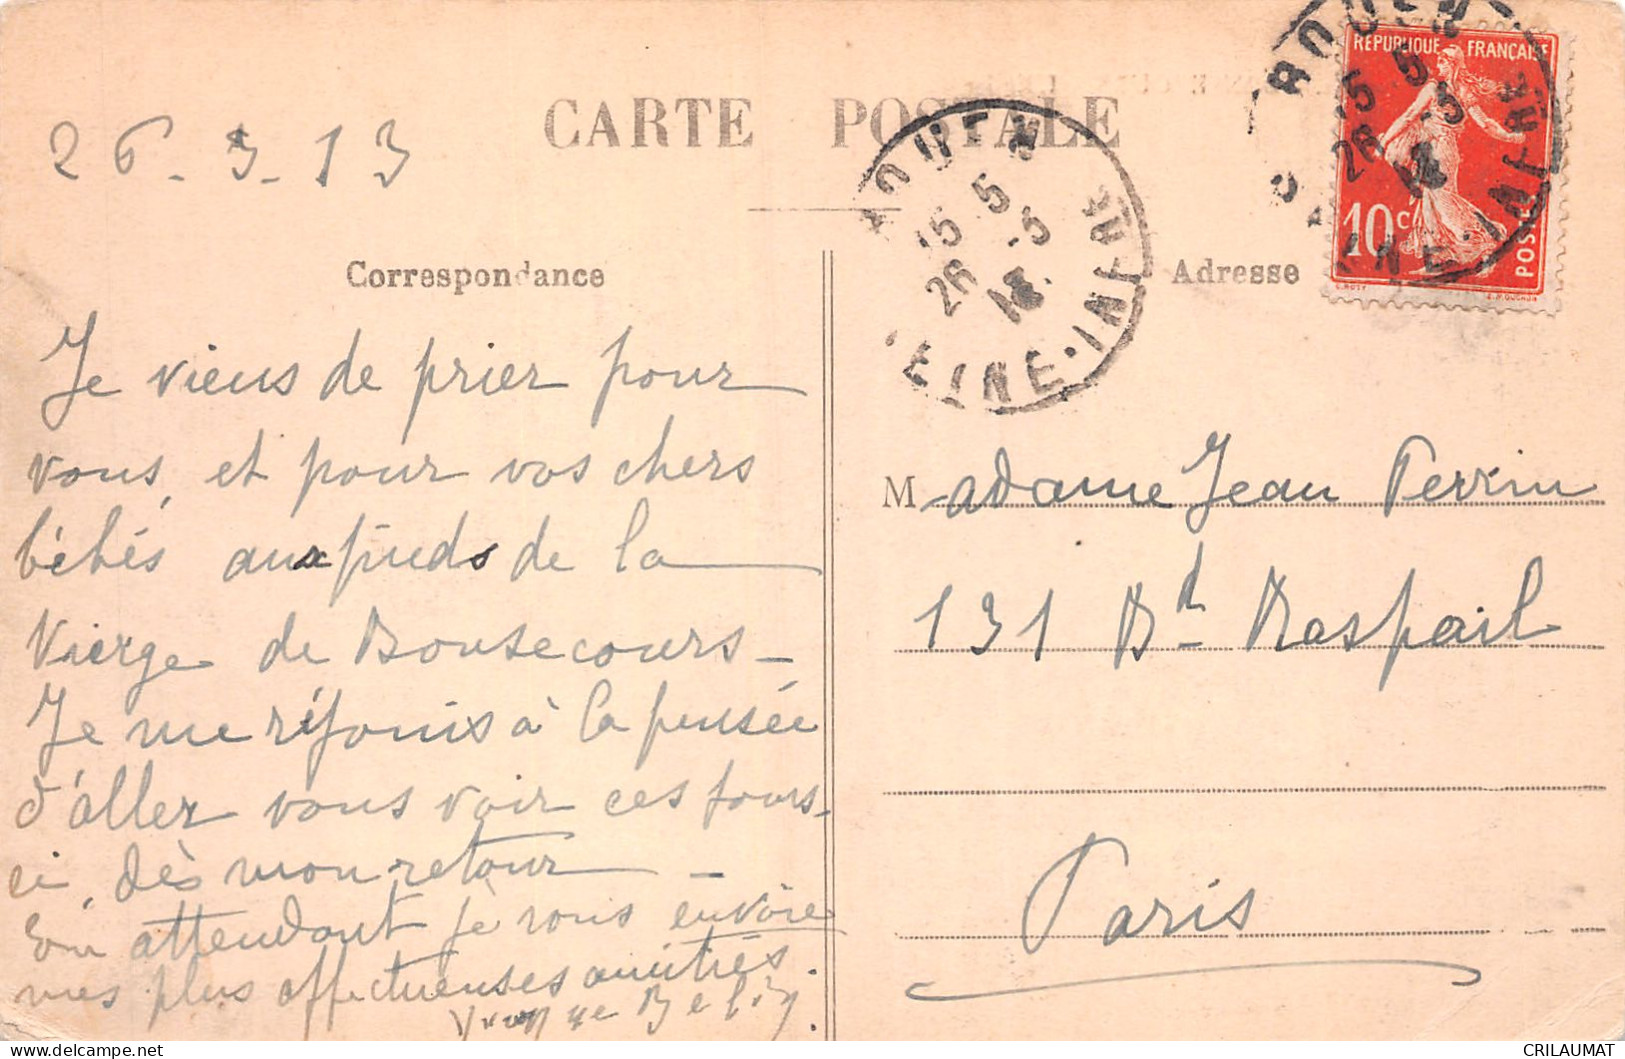 CARTE POSTALE
26-3-13
Correspondance
Je viens de prier pour
vous, et pour vos chers
bébés aux pieds de la
Vierge de Bonsecours_
Je me réjouis à la pensée
d'aller vous voir ces jours-
ci, dès mon retour_
En attendant je vous envoie
mes plus affectueuses amitiés.
ROUEN
15 5
26 -3
13
SEINE-INFRE
Adresse
RÉPUBLIQUE FRANÇAISE
10c
POSTES
ROUEN
15 5
26 -3
SEINE-INFRE
Madame Jean Perrin
131 Bd Raspail
Paris
CRILAUMAT